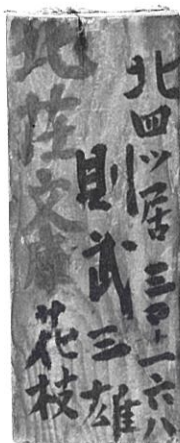 北四ツ居三ロ一一六八
則武三雄
花枝
北荘文庫